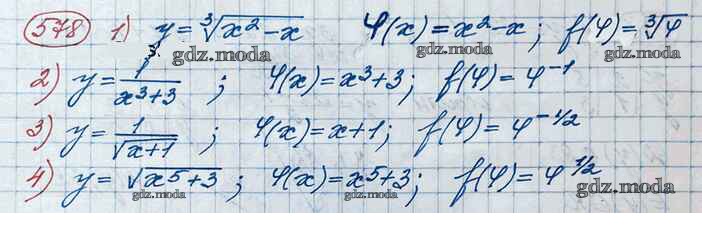 578 1) y = ∛(x² − x) φ(x) = x² − x ; f(φ) = ∛φ
3. gdz.moda gdz.moda gdz.moda
2) y = 1/(x³+3) ; φ(x) = x³+3 ; f(φ) = φ⁻¹
3) y = 1/√(x+1) ; φ(x) = x+1 ; f(φ) = φ^(−1/2)
4) y = √(x⁵+3) ; φ(x) = x⁵+3 ; f(φ) = φ^(1/2)
gdz.moda gdz.moda gdz.moda